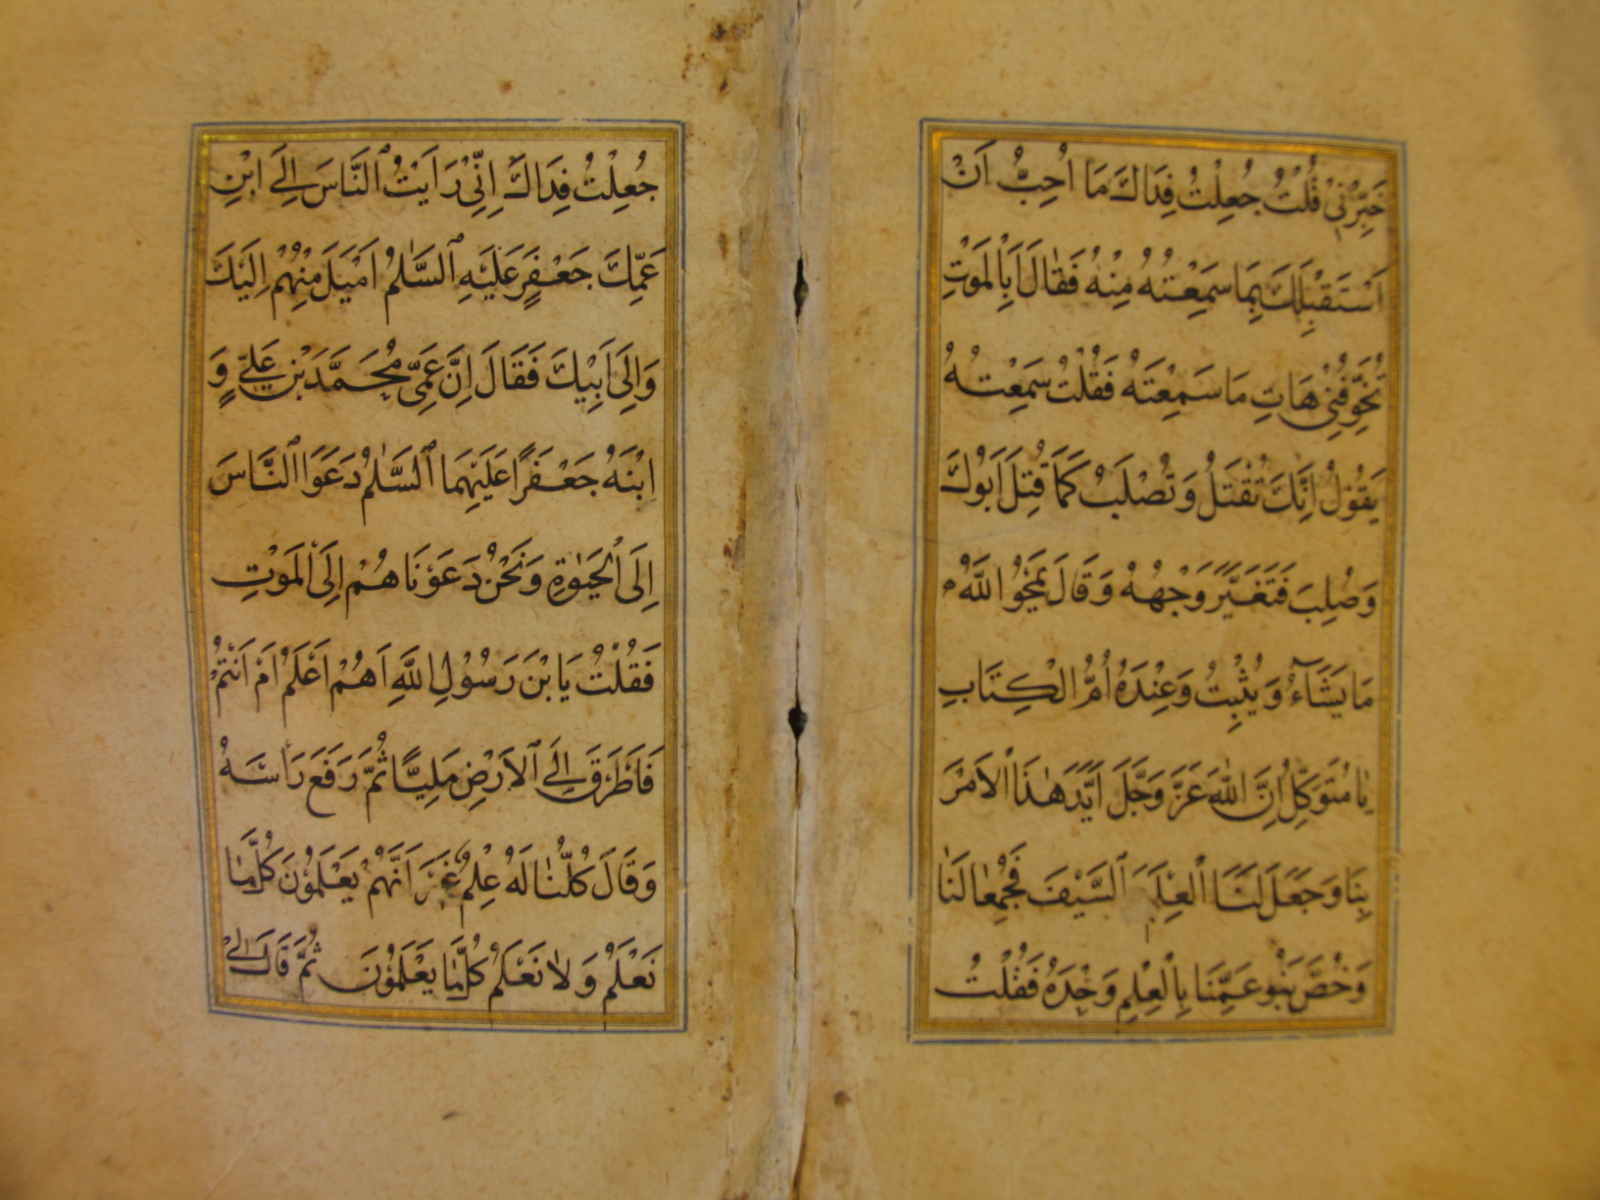 خَبِّرْنِي قُلْتُ جُعِلْتُ فِدَاكَ مَا اُحِبُّ اَنْ
اَسْتَقْبِلَكَ بِمَا سَمِعْتُهُ مِنْهُ فَقَالَ اَبِالْمَوْتِ
تُخَوِّفُنِي هَاتِ مَا سَمِعْتَهُ فَقُلْتُ سَمِعْتُهُ
يَقُوْلُ اِنَّكَ تُقْتَلُ وَتُصْلَبُ كَمَا قُتِلَ اَبُوْكَ
وَصُلِبَ فَتَغَيَّرَ وَجْهُهُ وَقَالَ يَمْحُوا اللّٰهُ
مَا يَشَآءُ وَيُثْبِتُ وَعِنْدَهُ اُمُّ الْكِتَابِ
يَا مُتَوَكِّلُ اِنَّ اللّٰهَ عَزَّ وَجَلَّ اَيَّدَ هٰذَا الْاَمْرَ
بِنَا وَجَعَلَ لَنَا الْعِلْمَ السَّيْفَ فَجُمِعَا لَنَا
وَخُصَّ بَنُو عَمِّنَا بِالْعِلْمِ وَحْدَهُ فَقُلْتُ
جُعِلْتُ فِدَاكَ اِنِّي رَاَيْتُ النَّاسَ اِلَى ابْنِ
عَمِّكَ جَعْفَرٍ عَلَيْهِ السَّلَامُ اَمْيَلَ مِنْهُمْ اِلَيْكَ
وَاِلَى اَبِيْكَ فَقَالَ اِنَّ عَمِّي مُحَمَّدَ بْنَ عَلِيٍّ وَ
ابْنَهُ جَعْفَرًا عَلَيْهِمَا السَّلَامُ دَعَوَا النَّاسَ
اِلَى الْحَيٰوةِ وَنَحْنُ دَعَوْنَاهُمْ اِلَى الْمَوْتِ
فَقُلْتُ يَابْنَ رَسُوْلِ اللّٰهِ اَهُمْ اَعْلَمُ اَمْ اَنْتُمْ
فَاَطْرَقَ اِلَى الْاَرْضِ مَلِيًّا ثُمَّ رَفَعَ رَاْسَهُ
وَقَالَ كُلُّنَا لَهُ عِلْمٌ غَيْرَ اَنَّهُمْ يَعْلَمُوْنَ كُلَّمَا
نَعْلَمُ وَلَا نَعْلَمُ كُلَّمَا يَعْلَمُوْنَ ثُمَّ قَالَ لِي